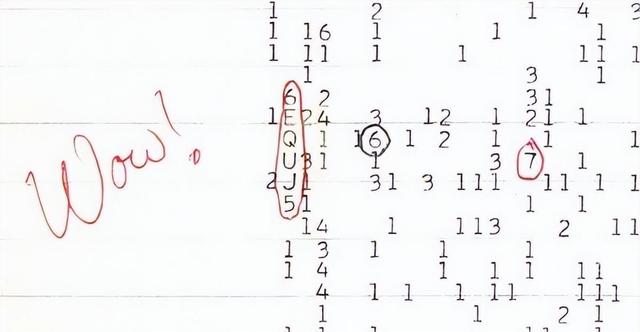 1 2 1 4 3
1 16 1 1 1
1 11 1 1 11 1
1 3 1
6 2 31
1E24 3 12 1 21 1
Q 1 16 1 2 1 1 1
Wow!
U31 1 3 7 1
2J1 31 3 111 11 1 1
51 1 1
14 1 113 2 11
1 3 1 1 1
1 4 1 1 11
4 1 1 1 11 111
1 1 2 1